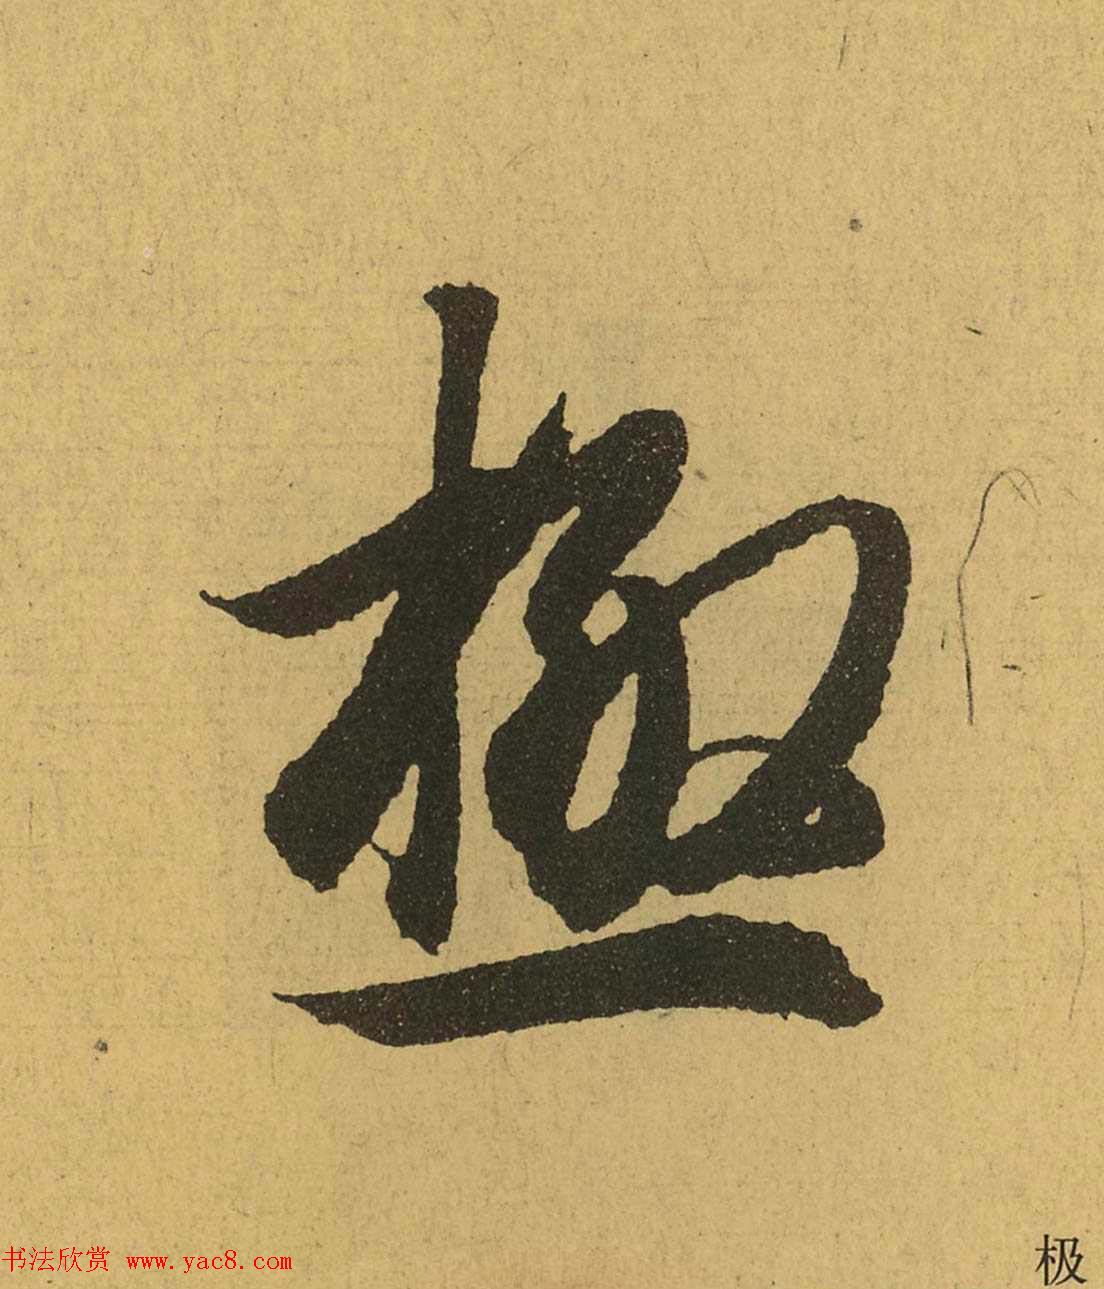 極
书法欣赏 www.yac8.com
极